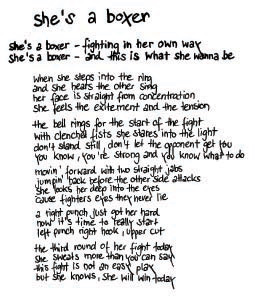 she's a boxer
she's a boxer - fighting in her own way
she's a boxer - and this is what she wanna be
when she steps into the ring
and she hears the other sing
her face is straight from concentration
she feels the exitement and the tension
the bell rings for the start of the fight
with clenched fists she stares into the light
don't stand still, don't let the opponent get you
you know, you're strong and you know what to do
movin' forward with two straight jabs
jumpin' back before the other side attacks
she looks her deep into the eyes
cause fighters eyes they never lie
a right punch just got her hard
now it's time to really start
left punch right hook, upper cut
the third round of her fight today
she sweats more than you can say
this fight is not an easy play
but she knows, she will win today